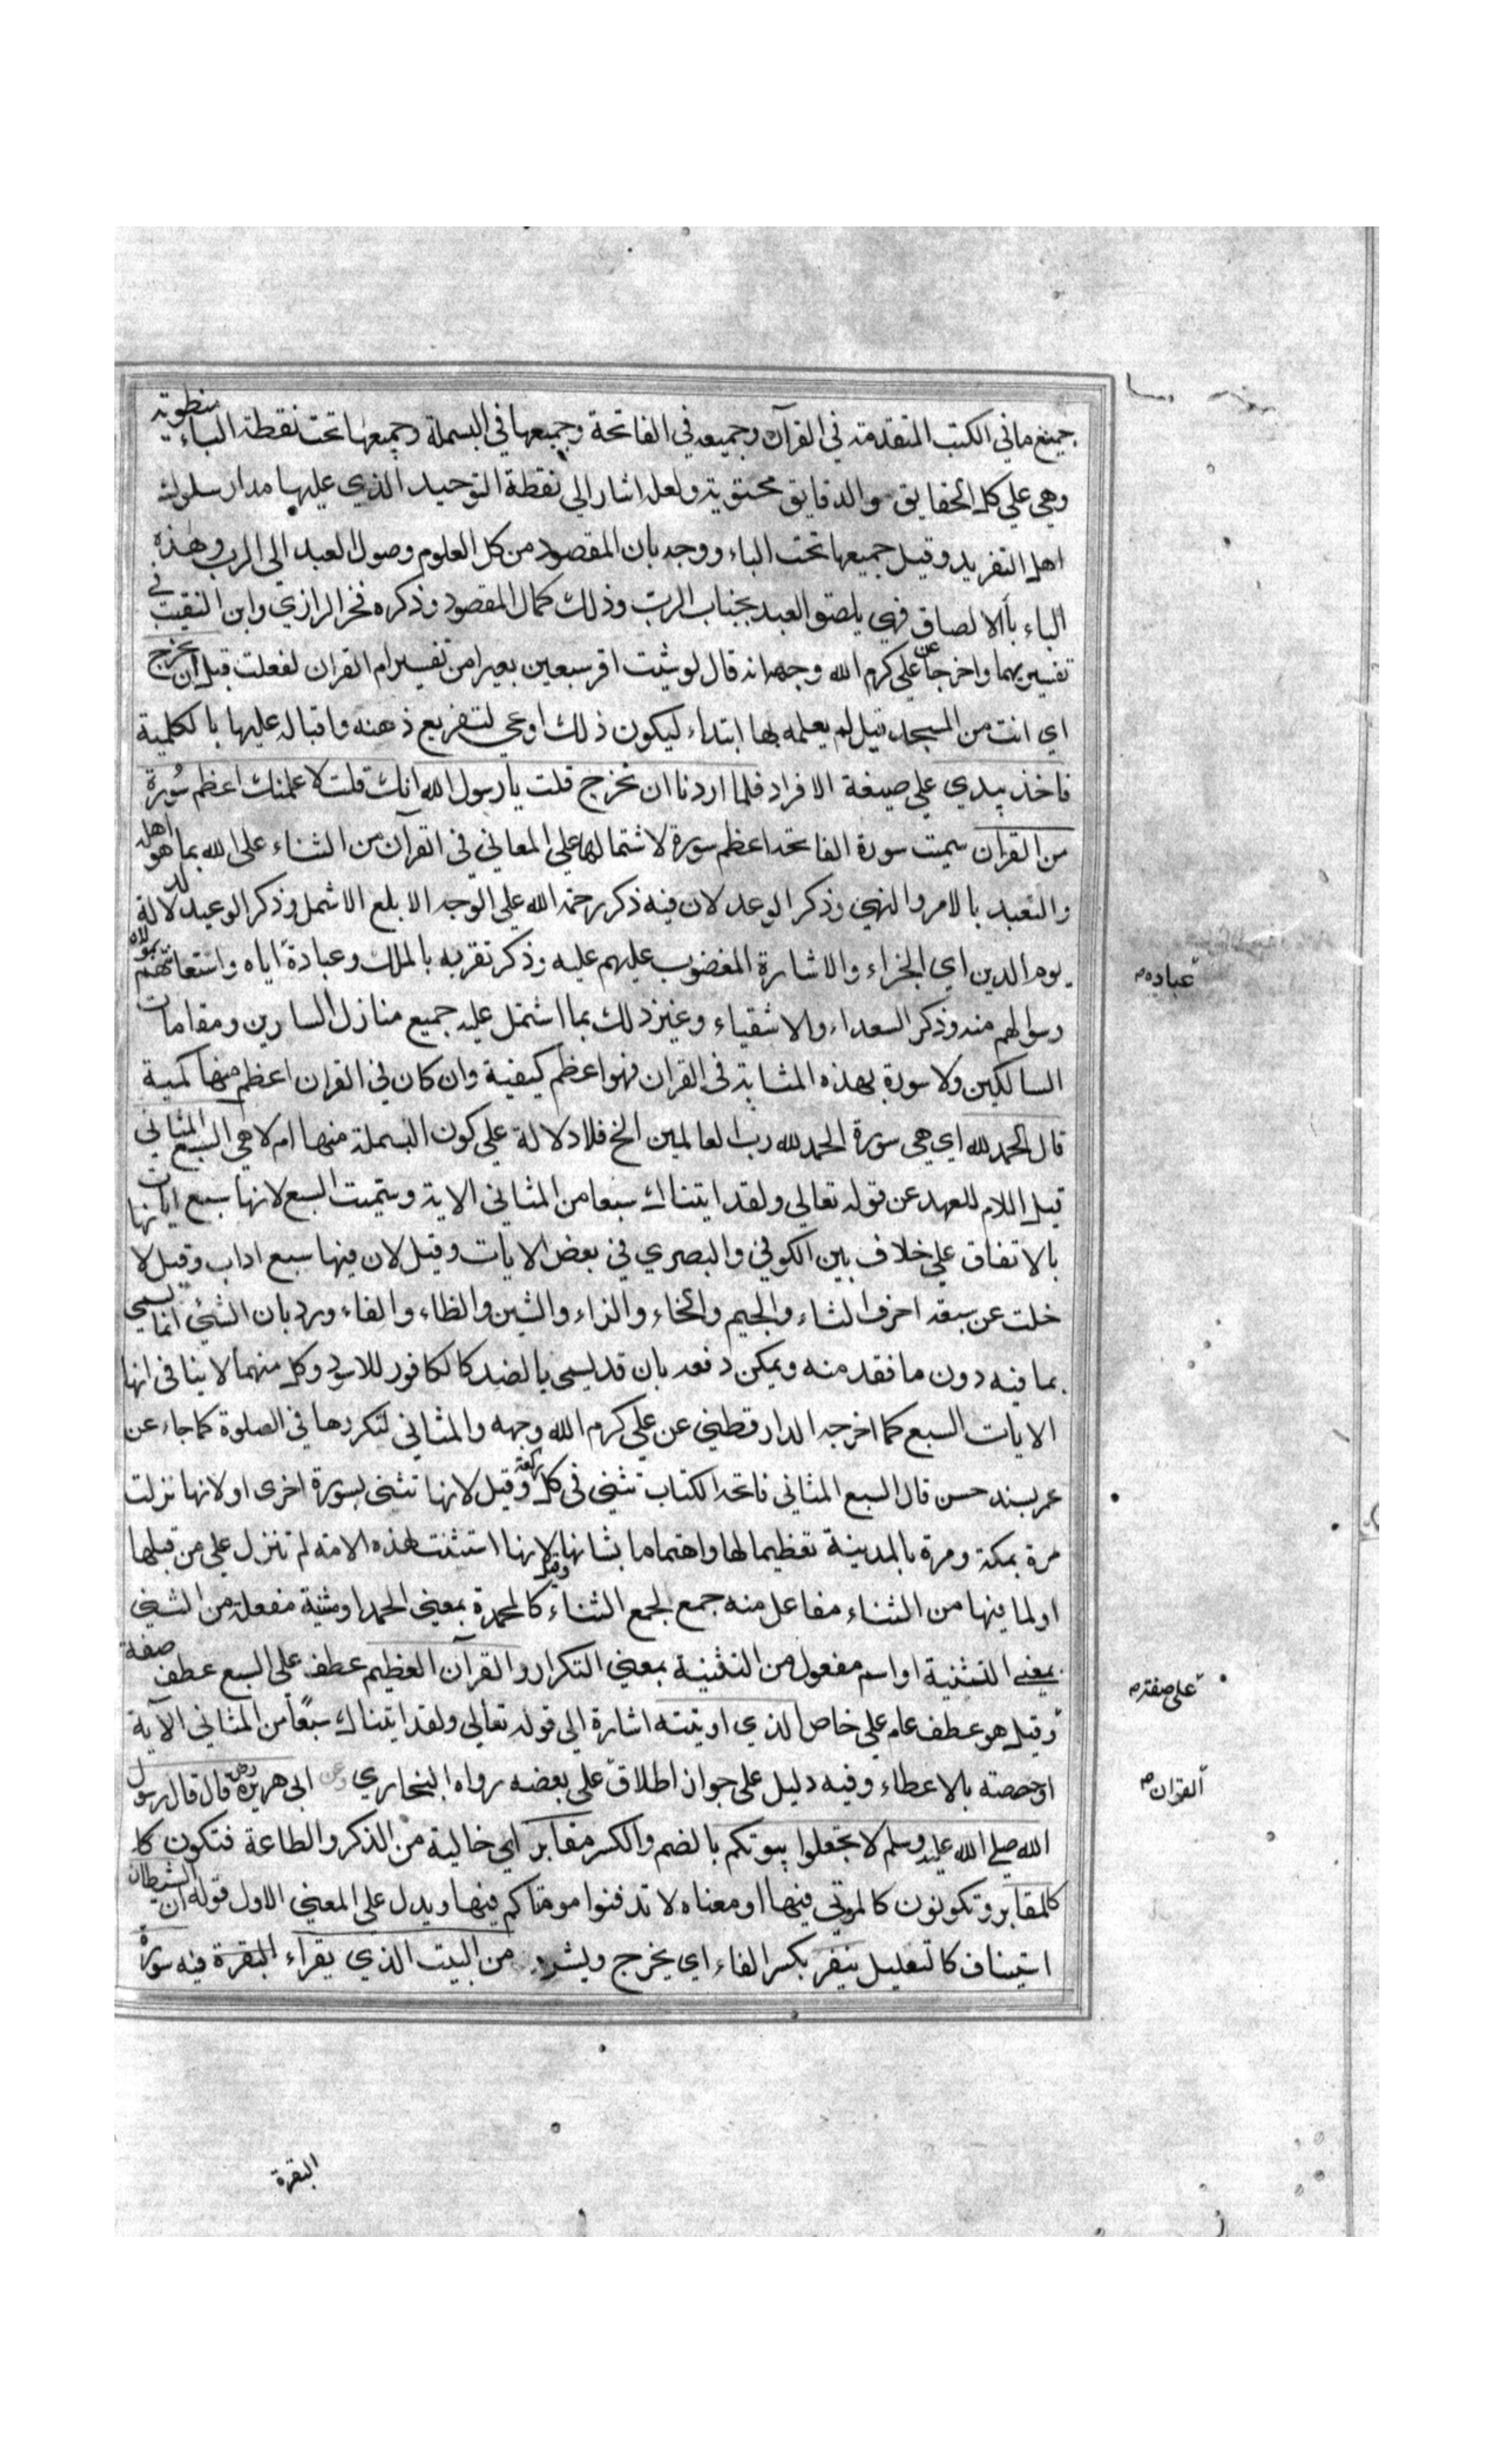 جميع ما في الكتب المتقدمة في القرآن وجميعه في الفاتحة وجميعها في البسملة وجميعها تحت نقطة الباء منطوية
وهي علي كل الحقايق والدقايق محتوية ولعله اشار الي نقطة التوحيد الذي عليها مدار سلوك
اهل التفريد وقيل جميعها تحت الباء ووجه بان المقصود من كل العلوم وصول العبد الي الرب وهذه
الباء بالالصاق فهي يلصق العبد بجناب الرب وذلك كمال المقصود وذكره فخر الرازي وابن النقيب في
تفسيريهما واخرجا عن علي كرم الله وجهه انه قال لو شئت اقر سبعين بعيرا من تفسير ام القران لفعلت قبل ان تخرج
اي انت من المسجد قيل لم يعلمه بها ابتداء ليكون ذلك اوعي لتفريع ذهنه واقباله عليها بالكلية
فاخذ بيدي علي صيغة الافراد فلما اردنا ان نخرج قلت يا رسول الله انك قلت لاعلمنك اعظم سُورة
من القران سميت سورة الفاتحه اعظم سورة لاشتمالها علي المعاني في القرآن من الثناء علي الله بما هو اهله
والتعبد بالامر والنهي وذكر الوعد لان فيه ذكر رحمة الله علي الوجه الابلع الاشمل وذكر الوعيد لدلالة
يوم الدين اي الجزاء والاشارة المغضوب عليهم عليه وذكر تفربه بالملك وعبادة اياه واستعانتهم بمولاه
عباده
وسوالهم منه وذكر السعداء والاشقياء وغير ذلك بما اشتمل عليه جميع منازل السارين ومقامات
السالكين ولا سورة بهذه المثابة في القران فهو اعظم كيفية وان كان في القران اعظم منها كمية
قال الحمد لله اي هي سورة الحمد لله رب العالمين الخ فلا دلالة علي كون البسملة منها ام لا هي السبع المثاني
قيل اللام للعهد عن قوله تعالي ولقد ايتناك سبعا من المثاني الاية وسميت السبع لانها سبع ايات
بالاتفاق علي خلاف بين الكوفي والبصري في بعض الايات وقيل لان فيها سبع اداب وقيل لانها
خلت عن سبعة احرف الثاء والجيم والخاء والزاء والشين والظاء والفاء ورد بان الشئي انما يسمي
بما فيه دون ما فقد منه ويمكن دفعه بان قد يسمي بالضد كالكافور للاسود وكل منهما لا ينافي انها
الايات السبع كما اخرجه الدارقطني عن علي كرم الله وجهه والمثاني لتكررها في الصلوة كما جاء عن
عمر بسند حسن قال السبع المثاني فاتحة الكتاب تثني في كل ركعة وقيل لانها تثني بسورة اخرى او لانها نزلت
مرة بمكة ومرة بالمدينة تعظيما لها واهتماما بشانها وقيل لانها استثنت لهذه الامة لم تنزل علي من قبلها
او لما فيها من الثناء مفاعل منه جمع لجمع الثناء كالمحمدة بمعني الحمد او مثنية مفعلة من الثني
بمعني التثنية او اسم مفعول من التثنية بمعني التكرار والقرآن العظيم عطف علي السبع عطف صفة
علي صفة
وقيل هو عطف عام علي خاص الذي اوتيته اشارة الي قوله تعالي ولقد ايتناك سبعًا من المثاني الآية
او خصصته بالاعطاء وفيه دليل علي جواز اطلاق علي بعضه رواه البخاري وعن ابي هريرة رض قال قال رسول
القران
الله صلي الله عليه وسلم لا تجعلوا بيوتكم بالضم والكسر مقابر اي خالية من الذكر والطاعة فتكون كا
كالمقابر وتكونون كالموتي فيها او معناه لا تدفنوا موتاكم فيها ويدل علي المعني الاول قوله ان الشيطان
استيناف كالتعليل ينفر بكسر الفاء اي يخرج ويشرد من البيت الذي يقراء البقرة فيه سورة
البقرة